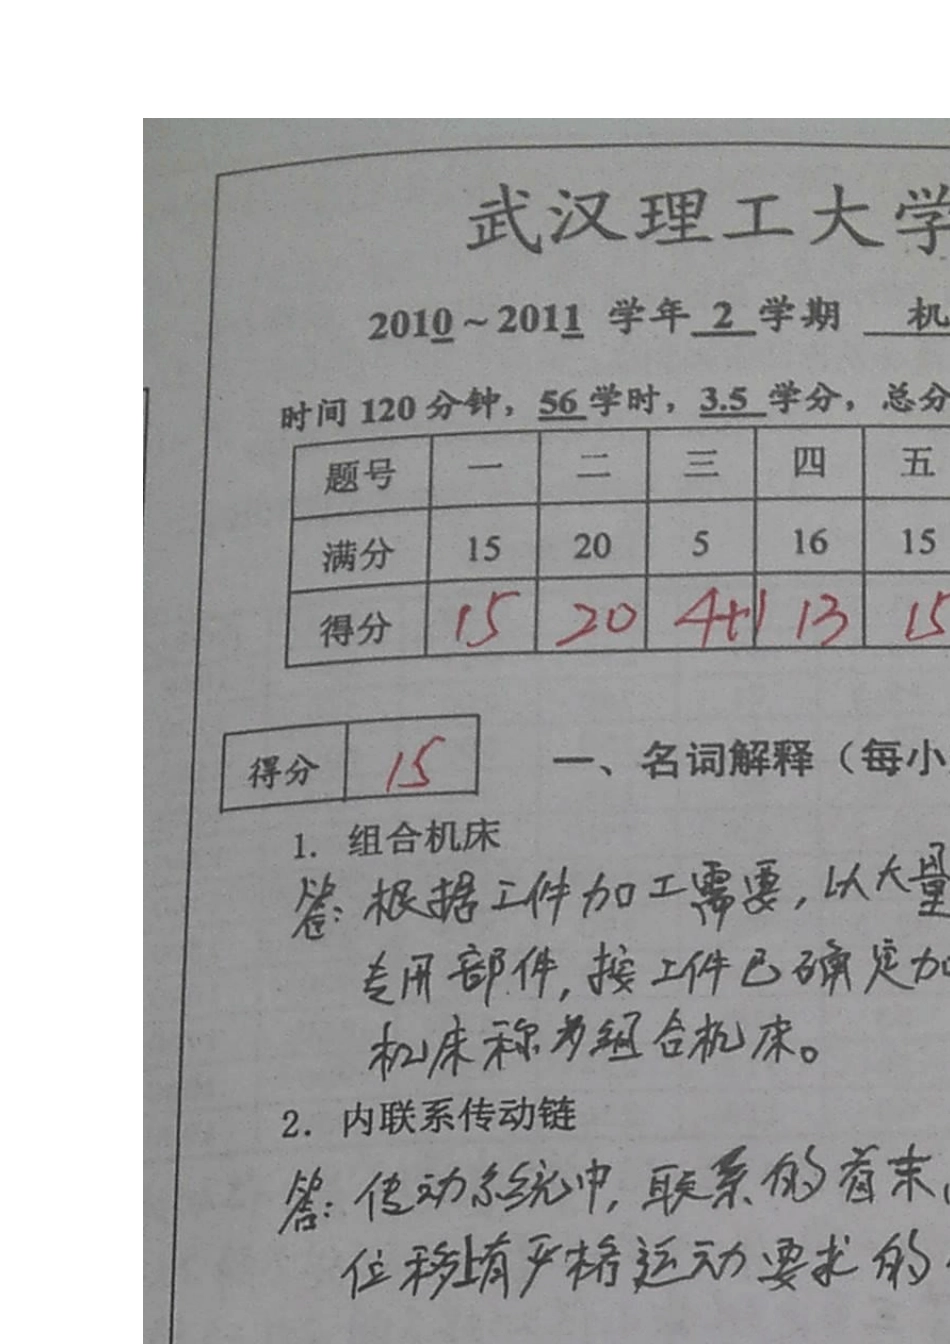 武汉理工大学
2010～2011 学年 2 学期 机
时间 120 分钟，56 学时，3.5 学分，总分
题号 一 二 三 四 五
满分 15 20 5 16 15
得分 15 20 4+1 13 15
得分 15 一、名词解释（每小
1. 组合机床
答：根据工件加工需要，以大量
专用部件，按工件已确定加
机床称为组合机床。
2. 内联系传动链
答：传动系统中，联系的首末
位移上有严格运动要求的